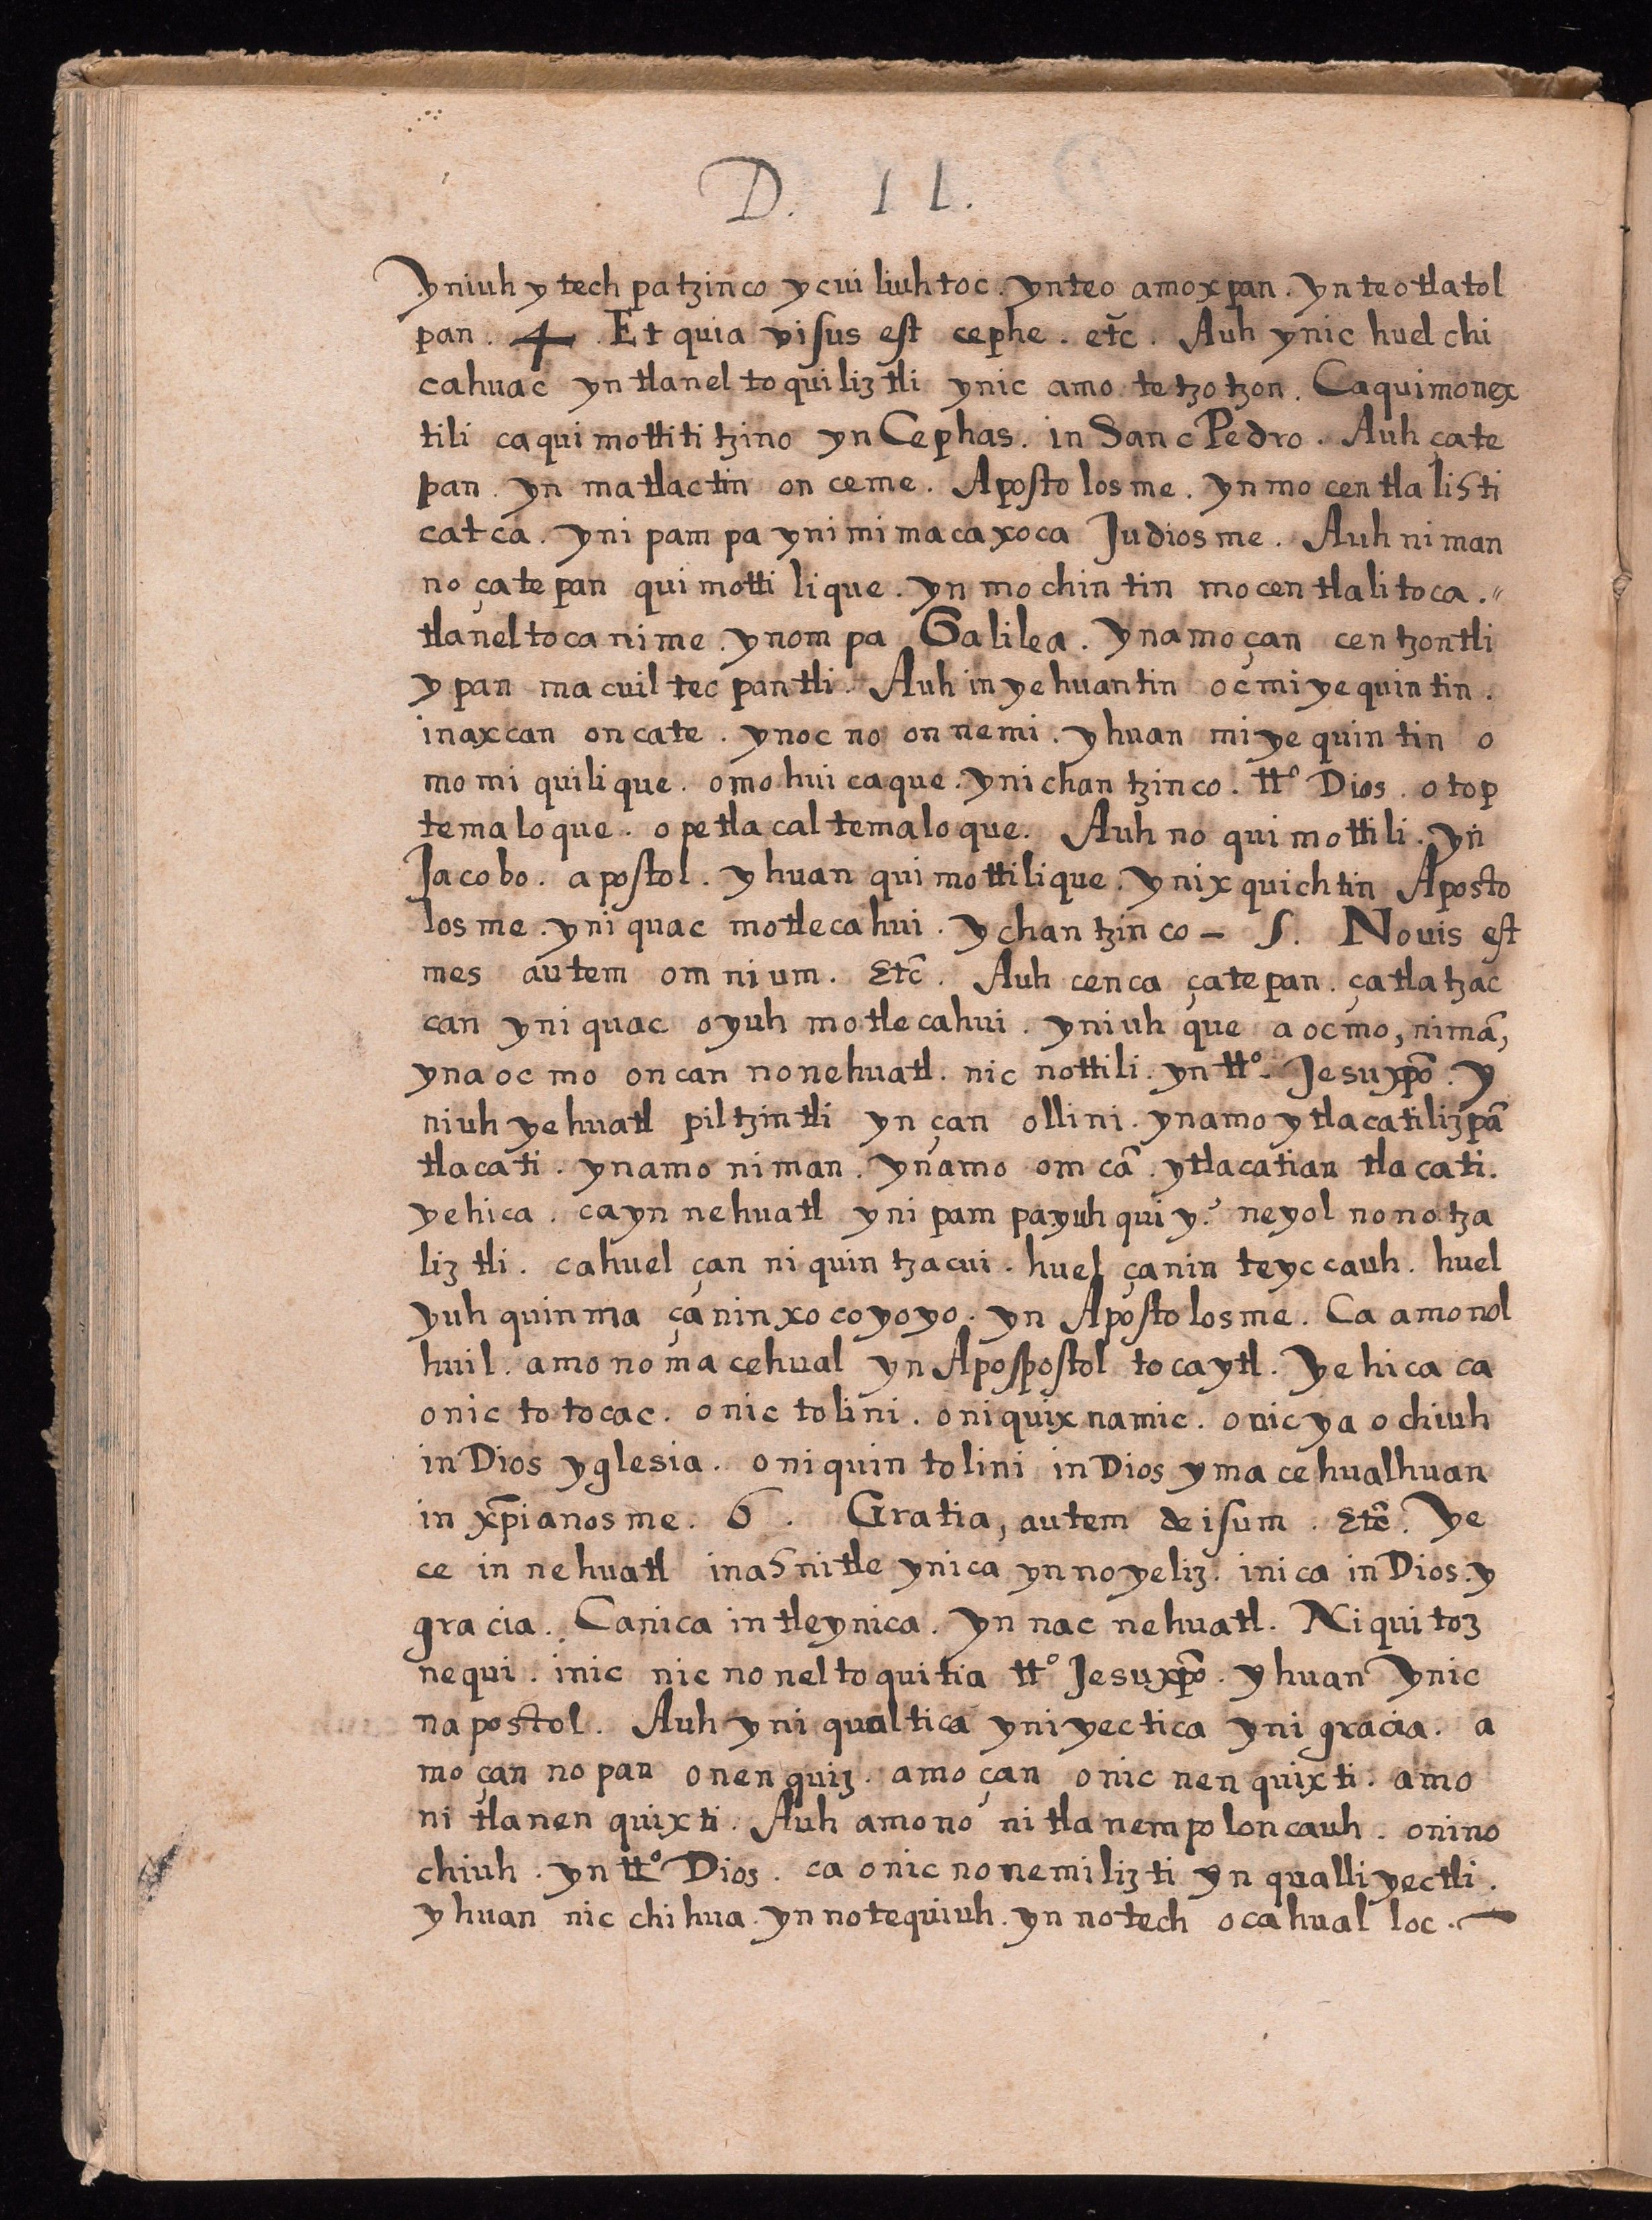 D. 11.
yniuh ytech patzinco ycuiliuhtoc. ynteo amoxpan. ynteotlatol
pan. 4. Et quia visus est cephe. etc̃. Auh ynic huel chi
cahuac yn tlaneltoquiliztli ynic amo tetzotzon. Caquimonex
tili caquimottititzino yn Cephas. in San c Pedro. Auh çate
pan. yn matlactin onceme. Apostolosme. ynmocentlalisti
catca. ynipampa ynimimacaxoca Judiosme. Auh niman
no çatepan quimottilique. yn mochintin mocentlalitoca.〃
tlaneltocanime. ynompa Galilea. ynamoçan centzontli
ypan macuiltecpantli. Auh inyehuantin oc miyequintin.
inaxcan oncate. ynoc no onnemi. yhuan miyequintin o
momiquilique. omohuicaque. ynichantzinco. tt° Dios. otop
temaloque. opetlacaltemaloque. Auh no quimottili. yn
Jacobo. apostol. yhuan quimottilique. ynixquichtin Aposto
losme. yniquac motlecahui. ychantzinco – 5. Nouis est
mes autem omnium. Etc̃. Auh cenca çatepan. çatlatzac
can yniquac oyuh motlecahui. yniuh que aocmo, nimã,
ynaocmo oncan nonehuatl. nic nottili. yn tt°. Jesuxp̃o. y
niuh yehuatl piltzintli yn çan ollini. ynamo ytlacatilizpã
tlacati. ynamo niman. ynamo omcã. ytlacatian tlacati.
yehica. cayn nehuatl ynipampayuhqui y.ˀ neyolnonotza
liztli. cahuel çan niquintzacui. huel çanin teyccauh. huel
yuhquinma çaninxocoyoyo. yn Apostolosme. Ca amonol
huil. amo nomacehual yn Apospostol tocaytl. yehica ca
onic totocac. onic tolini. oniquixnamic. onicyaochiuh
in Dios yglesia. oniquintolini in Dios ymacehualhuan
in xp̃ianosme. 6. Gratia, autem dei sum. Etc̃. ye
ce in nehuatl inasnitle ynica ynnoyeliz. inica in Dios. y
gracia. Canica intleynica. yn nac nehuatl. Niquitoz
nequi. inic nic noneltoquitia tt° Jesuxp̃o. yhuan ynic
napostol. Auh yniqualtica yniyectica ynigracia. a
mo çan nopan onenquiz. amo çan onic nenquixti. amo
nitlanenquixti. Auh amono nitlanempoloncauh. onino
chiuh. yn tt° Dios. ca onic nonemilizti yn qualliyectli.
yhuan nic chihua. yn notequiuh. yn notech ocahualloc. –